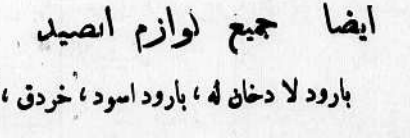 ايضا جميع لوازم الصيد
بارود لا دخان له ، بارود اسود ، خردق ،